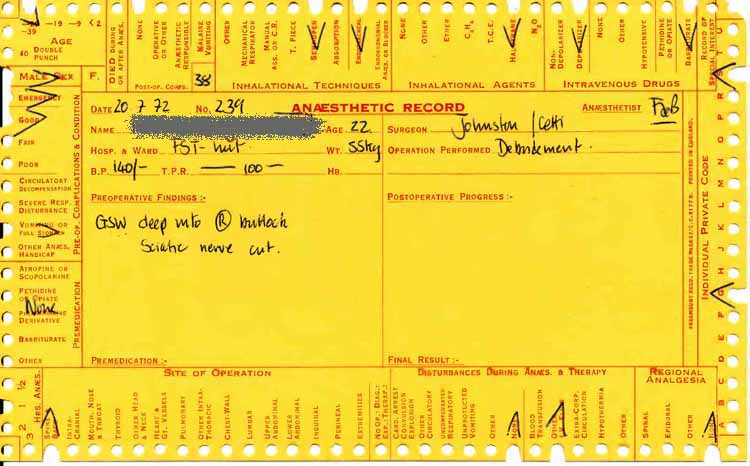 -19 -9 <2
-39
AGE
40 DOUBLE PUNCH
MALE SEX F.
DIED DURING OR AFTER ANÆS.
NONE
OPERATIVE OR OTHER
ANÆSTHETIC RESPONSIBLE
MALAISE VOMITING
OTHER
POST-OP. COMPS.
38
MECHANICAL RESPIRATOR
MANUAL ASS. OR C.R.
T. PIECE
ABSORPTION
INHALATIONAL TECHNIQUES
NONE
OTHER
ETHER
C3H6
T.C.E.
HALOTHANE
N2O
INHALATIONAL AGENTS
NON-DEPOLARIZER
DEPOLARIZER
NONE
OTHER
HYPOTENSIVE
PETHIDINE OR OPIATE
BARBITURATE
INTRAVENOUS DRUGS
RECORD OF SPECIAL INTEREST
DATE 20 7 72 NO. 239 ANÆSTHETIC RECORD ANÆSTHETIST
NAME AGE 22 SURGEON Johnston / Cetti
HOSP. & WARD FST - hut WT. 55kg OPERATION PERFORMED Debridement.
B.P. 140/- T.P.R. 100 - HB.
PREOPERATIVE FINDINGS :- POSTOPERATIVE PROGRESS :-
GSW deep into Ⓡ buttock
Sciatic nerve cut.
PREMEDICATION :- FINAL RESULT :-
EMERGENCY
GOOD
FAIR
POOR
CIRCULATORY DECOMPENSATION
SEVERE RESP. DISTURBANCE
VOMITING OR FULL STOMACH
OTHER ANÆS. HANDICAP
PRE-OP. COMPLICATIONS & CONDITION
ATROPINE OR SCOPOLAMINE
PETHIDINE OR OPIATE
None
DERIVATIVE
BARBITURATE
OTHER
PREMEDICATION
PRINTED IN ENGLAND.
INDIVIDUAL PRIVATE CODE
A B C D E F G H J K L M N O P R S T U
HRS. ANÆS.
3 2 1 ½
SITE OF OPERATION
INTRA-CRANIAL
MOUTH, NOSE & THROAT
THYROID
OTHER HEAD & NECK
HEART & GT. VESSELS
PULMONARY
OTHER INTRA-THORACIC
CHEST-WALL
LUMBAR
UPPER ABDOMINAL
LOWER ABDOMINAL
INGUINAL
PERINEAL
EXTREMITIES
NO OP.: DIAG.: ESP. THERAP.:
DISTURBANCES DURING ANÆS. & THERAPY
CARD. ARREST
CONVULSION EXPLOSION
OTHER CIRCULATORY
UNCOMPENSATED RESPIRATORY
UNPROTECTED VOMITING
OTHER
NONE
BLOOD TRANSFUSION
OTHER
EXTRA-CORP. CIRCULATION
HYPOTHERMIA
OTHER
REGIONAL ANALGESIA
SPINAL
EPIDURAL
OTHER
NONE